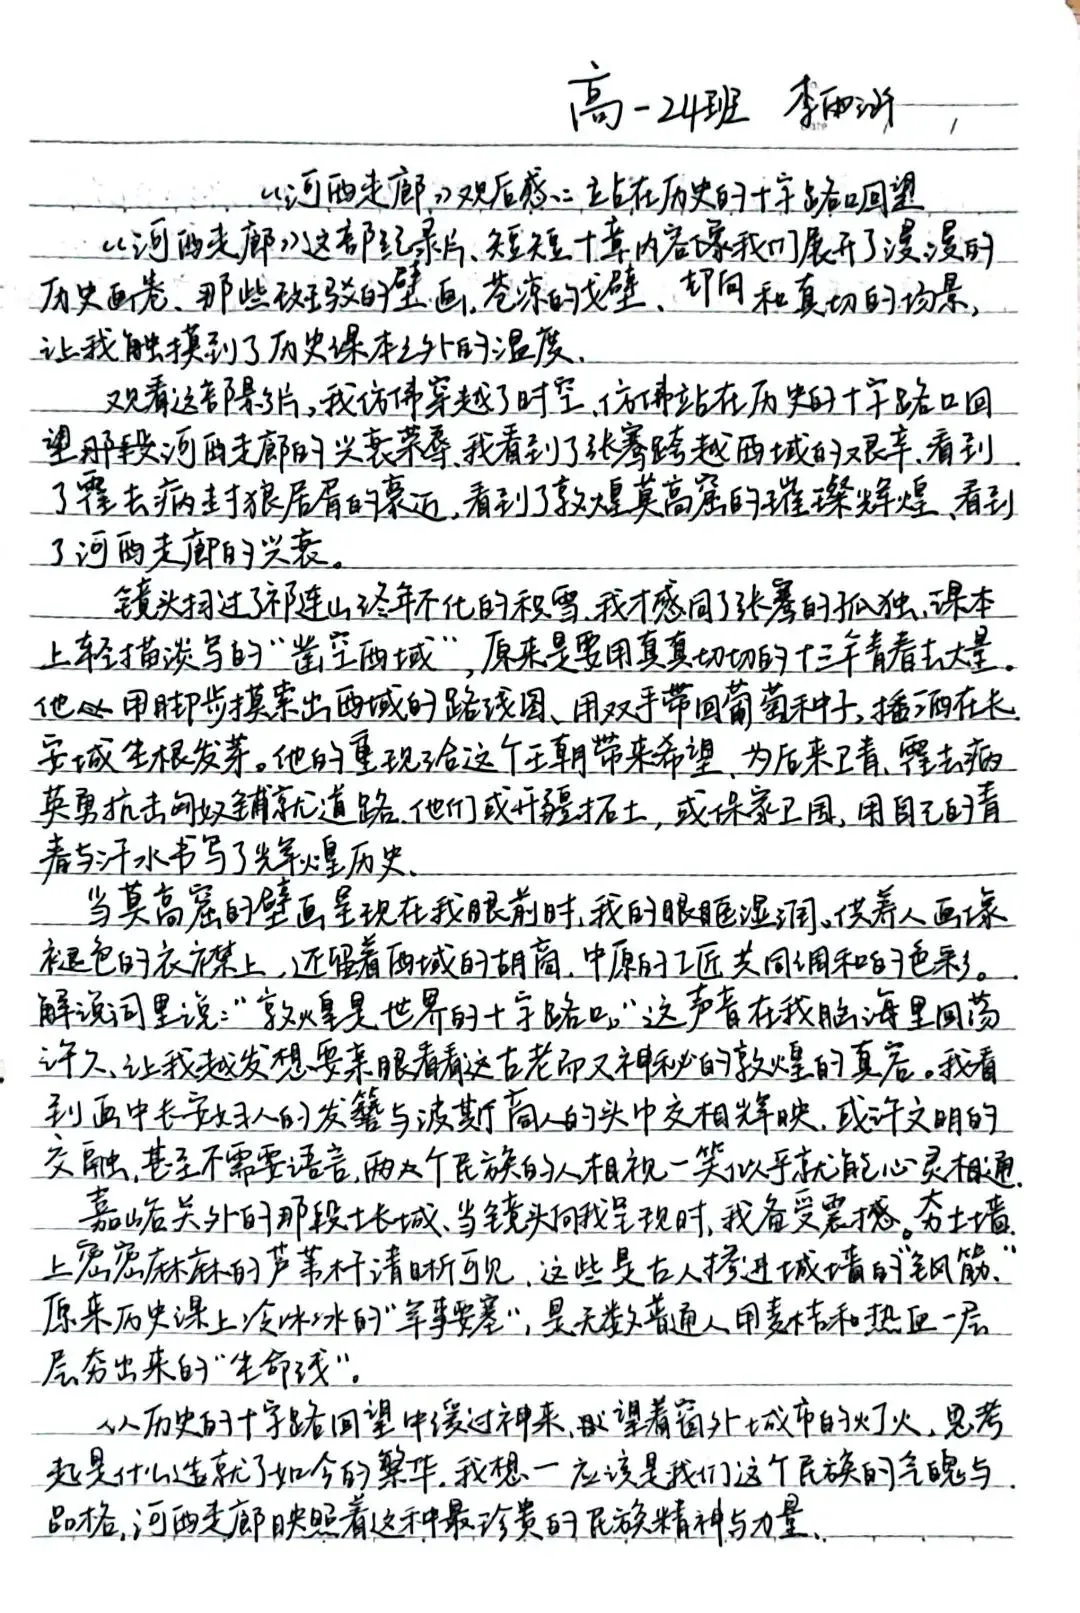 高一24班 李雨
《河西走廊》观后感：站在历史的十字路口回望
《河西走廊》这部纪录片、短短十章内容像我们展开了漫漫的
历史画卷、那些斑驳的壁画，苍凉的戈壁、却同和真切的场景，
让我触摸到了历史课本之外的温度.
观看这部影片，我仿佛穿越了时空、仿佛站在历史的十字路口回
望那段河西走廊的兴衰荣辱、我看到了张骞跨越西域的艰辛、看到
了霍去病封狼居胥的豪迈，看到了敦煌莫高窟的璀璨辉煌、看到
了河西走廊的兴衰。
镜头扫过了祁连山终年不化的积雪、我才感同了张骞的孤独、课本
上轻描淡写的“凿空西域”，原来是要用真真切切的十三年青春去丈量。
他用脚步摸索出西域的路线图、用双手带回葡萄种子，播洒在长
安城生根发芽。他的重现给这个王朝带来希望、为后来卫青、霍去病
英勇抗击匈奴铺就道路.他们或开疆拓土，或保家卫国，用自己的青
春与汗水书写了辉煌历史.
当莫高窟的壁画呈现在我眼前时，我的眼眶湿润。供养人画像
褪色的衣襟上，还留着西域的胡商、中原的工匠共同调和的色彩。
解说词里说：“敦煌是世界的十字路口。”这声音在我脑海里回荡
许久、让我越发想要亲眼看看这古老而又神秘的敦煌的真容。我看
到画中长安妇人的发簪与波斯商人的头巾交相辉映，或许文明的
交融，甚至不需要语言，两个民族的人相视一笑似乎就能心灵相通.
嘉峪关外的那段土长城、当镜头向我呈现时，我备受震撼。夯土墙
上密密麻麻的芦苇杆清晰可见，这些是古人掺进城墙的“钢筋”
原来历史课上冷冰冰的“军事要塞”，是无数普通人用麦秸和热血一层
层夯出来的“生命线”。
从历史的十字路回望中缓过神来，望着窗外城市的灯火，思考
起是什么造就了如今的繁华.我想一应该是我们这个民族的气魄与
品格，河西走廊映照着这种最珍贵的民族精神与力量.